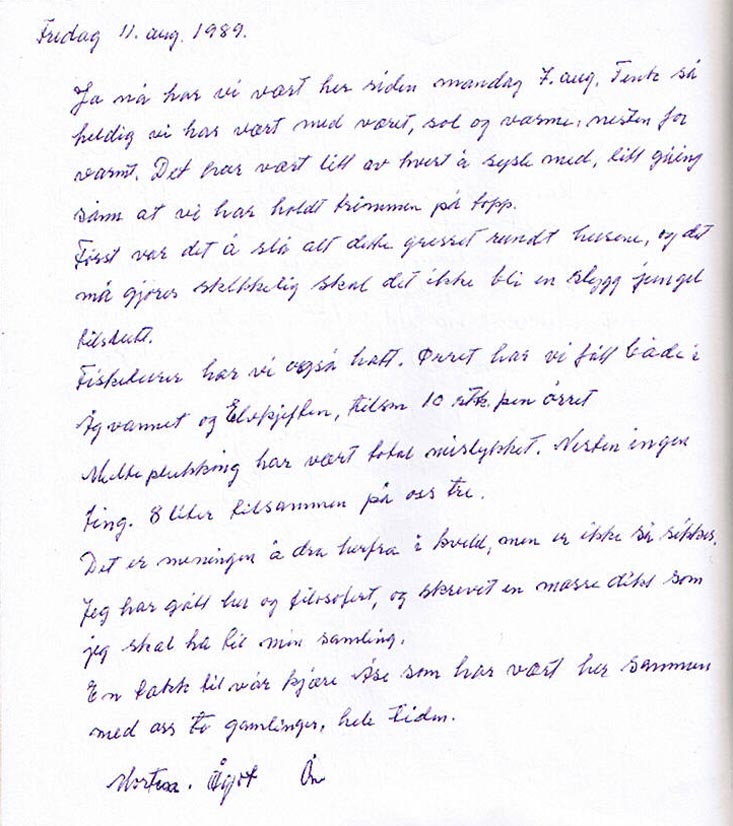 Fredag 11. aug. 1989.
Ja nå har vi vært her siden mandag 7. aug. Tenk så
heldig vi har vært med været, sol og varme, nesten for
varmt. Det har vært litt av hvert å sysle med, litt gåing
sånn at vi har holdt trimmen på topp.
Først var det å slå alt dette gresset rundt husene, og det
må gjøres skikkelig skal det ikke bli en stygg jungel
tilslutt.
Fisketurer har vi også hatt. Ørret har vi fått både i
vannet og, tilsm 10 stk. pen ørret
Multeplukking har vært total mislykket. Nesten ingen
ting. 8 liter tilsammen på oss tre.
Det er meningen å dra herfra i kveld, men er ikke så sikker.
Jeg har gått her og filosofert, og skrevet en masse dikt som
jeg skal ha til min samling.
En takk til vår kjære Åse som har vært her sammen
med oss to gamlinger, hele tiden.
Ågot